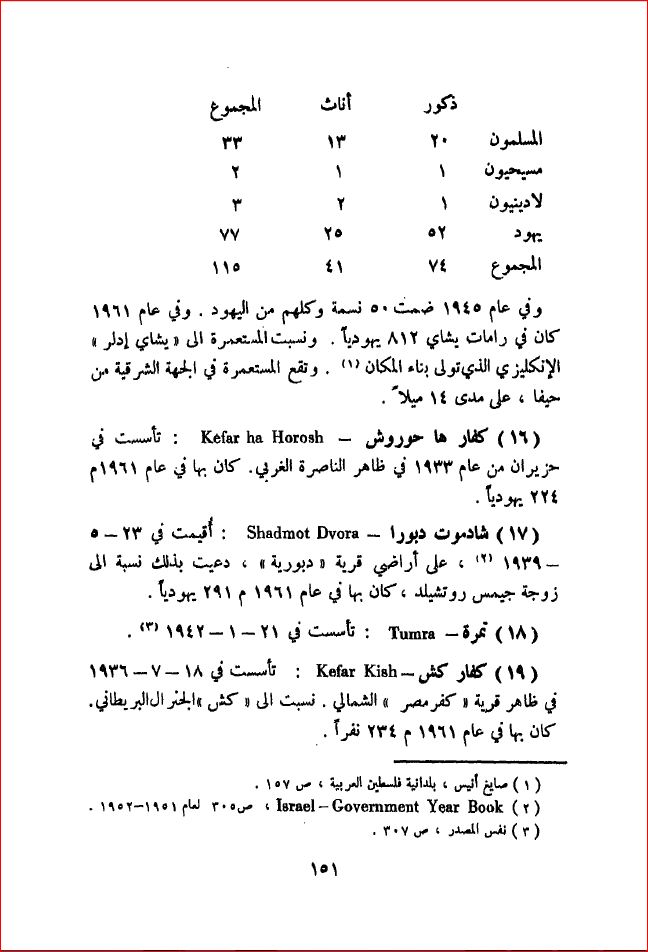 ذكور أناث المجموع
المسلمون ٢٠ ١٣ ٣٣
مسيحيون ١ ١ ٢
لادينيون ١ ٢ ٣
يهود ٥٢ ٢٥ ٧٧
المجموع ٧٤ ٤١ ١١٥
وفي عام ١٩٤٥ ضمت ٥٠ نسمة وكلهم من اليهود . وفي عام ١٩٦١
كان في رامات يشاي ٨١٢ يهودياً . ونسبت المستعمرة الى « يشاي إدلر »
الإنكليزي الذي تولى بناء المكان (١) . وتقع المستعمرة في الجهة الشرقية من
حيفا ، على مدى ١٤ ميلاً .
( ١٦ ) كفار ها حوروش – Kefar ha Horosh : تأسست في
حزيران من عام ١٩٣٣ في ظاهر الناصرة الغربي. كان بها في عام ١٩٦١م
٢٢٤ يهودياً .
( ١٧ ) شادموت دبورا – Shadmot Dvora : أُقيمت في ٢٣ – ٥
– ١٩٣٩ (٢) ، على أراضي قرية « دبورية » ، دعيت بذلك نسبة الى
زوجة جيمس روتشيلد ، كان بها في عام ١٩٦١ م ٢٩١ يهودياً .
( ١٨ ) تمرة – Tumra : تأسست في ٢١ – ١ – ١٩٤٢ (٣) .
( ١٩ ) كفار كش – Kefar Kish : تأسست في ١٨ – ٧ – ١٩٣٦
في ظاهر قرية « كفر مصر » الشمالي . نسبت الى « كش » الجنرال البريطاني.
كان بها في عام ١٩٦١ م ٢٣٤ نفراً .
( ١ ) صايغ أنيس ، بلدانية فلسطين العربية ، ص ١٥٧ .
( ٢ ) Israel – Government Year Book ، ص ٣٠٥ لعام ١٩٥١–١٩٥٢ .
( ٣ ) نفس المصدر ، ص ٣٠٧ .
١٥١